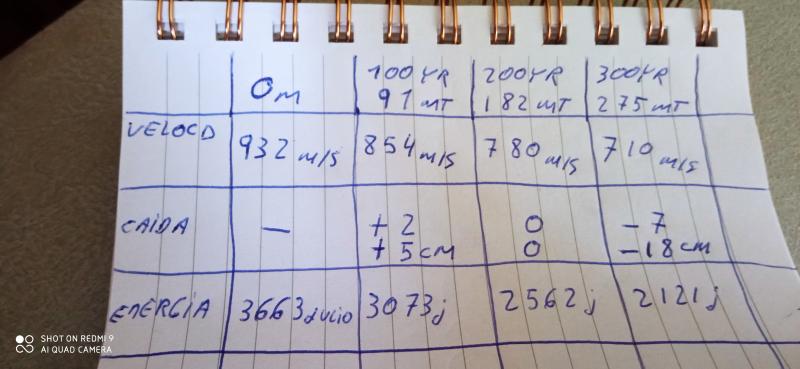 0m 100YR 200YR 300YR
91 MT 182 MT 275 MT
VELOCD 932 m/s 854 m/s 780 m/s 710 m/s
CAIDA — + 2 0 - 7
+ 5 cm 0 - 18 cm
ENERGIA 3663 julio 3073 j 2562 j 2121 j
SHOT ON REDMI 9
AI QUAD CAMERA